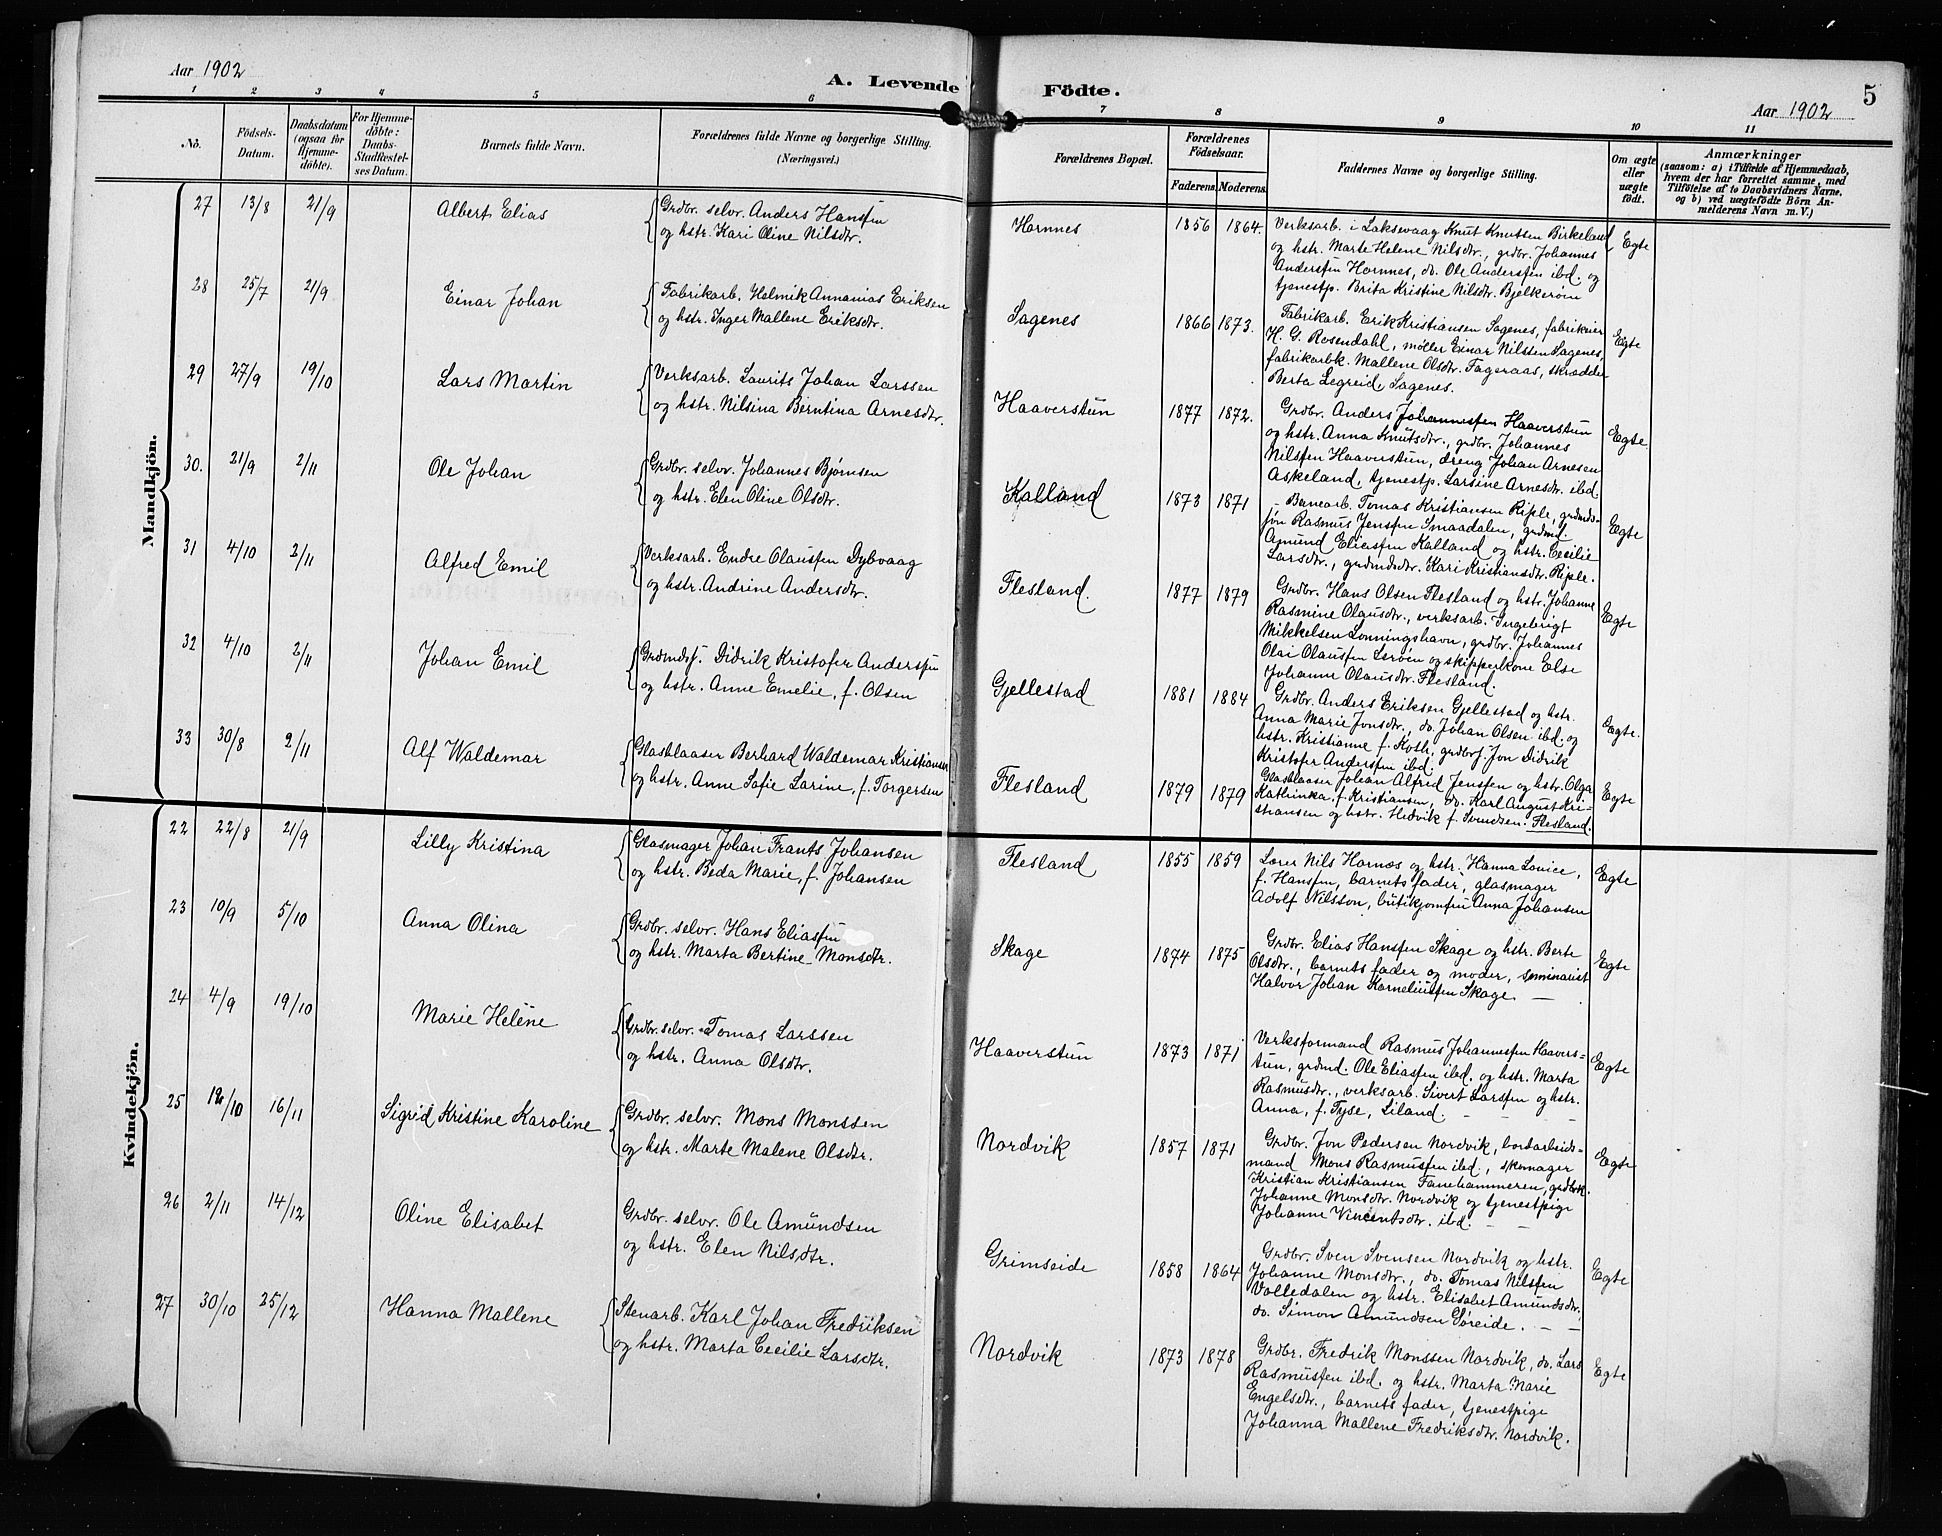 Aar 1902
A. Levende
1 2 3 4 5 6
No.
Födsels-
Datum.
Daabsdatum
(ogsaa for
Hjemme-
döbte).
For Hjemme-
döbte:
Daabs-
Stadfæstel-
ses Datum.
Barnets fulde Navn.
Forældrenes fulde Navne og borgerlige Stilling.
(Næringsvei.)
Mandkjön.
27 13/8 21/9 Albert Elias
Grdbr. selv. Anders Hanssen
og hstr. Kari Oline Nilsdtr.
28 25/7 21/9 Einar Johan
Fabrikarb. Helmik Annanias Eriksen
og hstr. Inger Mallene Eriksdtr.
29 27/9 19/10 Lars Martin
Verksarb. Laurits Johan Larssen
og hstr. Nilsina Berntina Arnesdtr.
30. 21/9 2/11 Ole Johan
Grdbr. selv. Johannes Bjørnsen
og hstr. Elen Oline Olsdtr.
31 4/10 2/11 Alfred Emil
Verksarb. Endre Olaussen Dybvaag
og hstr. Andrine Andersdtr.
32 4/10 2/11 Johan Emil
Grdmdsf. Didrik Kristofer Anderssen
og hstr. Anne Emelie, f. Olsen
33 30/8 2/11 Alf Waldemar
Glasblaaser Berhard Waldemar Kristiansen
og hstr. Anne Sofie Larine, f. Torgersen
Kvindekjön.
22 22/8 21/9 Lilly Kristina
Glasmager Johan Frants Johansen
og hstr. Beda Marie, f. Johansen
23 10/9 5/10 Anna Olina
Grdbr. selv. Hans Eliassen
og hstr. Marta Bertine Monsdtr.
24 4/9 19/10 Marie Helene
Grdbr. selv. Tomas Larssen
og hstr. Anna Olsdtr.
25 12/10 16/11 Sigrid Kristine Karoline
Grdbr. selv. Mons Monssen
og hstr. Marte Malene Olsdtr.
26 2/11 14/12 Oline Elisabet
Grdbr. selv. Ole Amundsen
og hstr. Elen Nilsdtr.
27 30/10 25/12 Hanna Mallene
Stenarb. Karl Johan Fredriksen
og hstr. Marta Cecilie Larsdtr.
Födte.
5
Aar 1902
7 8 9 10 11
Forældrenes Bopæl.
Forældrenes
Födselsaar.
Faderens. Moderens.
Faddernes Navne og borgerlige Stilling.
Om ægte
eller
uægte
födt.
Anmærkninger
(saasom: a) i Tilfælde af Hjemmedaab,
hvem der har forrettet samme, med
Tilföielse af to Daabsvidners Navne,
og b) ved uægtefödte Börn An-
melderens Navn m. V.)
Hornnes 1856 1864. Egte
Verksarb. i Laksevaag Knut Knutsen Birkeland
og hstr. Marte Helene Nilsdtr., grdbr. Johannes
Anderssen Hornnes, do. Ole Anderssen ibd. og
tjenestp. Brita Kristine Nilsdtr. Bjelkerøen
Sagenes 1866 1873. Egte
Fabrikarb. Erik Kristiansen Sagenes, fabrikeier
H. G. Rosendahl, møller Einar Nilssen Sagenes,
fabrikarbk. Mallene Olsdtr. Fageraas, skrædder
Berta Legreid, Sagenes.
Haaverstun 1877 1872. Egte
Grdbr. Anders Johannessen Haaverstun
og hstr. Anna Knutsdtr., grdbr. Johannes
Nilssen Haaverstun, dreng Johan Arnesen
Askeland, tjenestp. Larsine Arnesdtr. ibd.
Kalland 1873 1871 Egte
Banearb. Tomas Kristiansen Riple, grdmds-
søn Rasmus Jenssen Smaadalen, grdmd.
Amund Eliassen Kalland og hstr. Cecilie
Larsdtr., grdmdsdtr. Kari Kristiansdtr. Riple.
Flesland. 1877 1879 Egte
Grdbr. Hans Olsen Flesland og hstr. Johanne
Rasmine Olausdtr., verksarb. Ingebrigt
Mikkelsen Lonningshavn, grdbr. Johannes
Olai Olaussen Lerøen og skipperkone Else
Johanne Olausdtr. Flesland.
Gjellestad 1881 1884 Egte.
Grdbr. Anders Eriksen Gjellestad og hstr.
Anna Marie Jonsdtr., do. Johan Olsen ibd. og
hstr. Kristianne f. Koth, grdbrsf. Jon Didrik
Kristofer Anderssen ibd.
Flesland 1879 1879 Egte
Glasblaaser Johan Alfred Jenssen og hstr. Olga
Kathinka, f. Kristiansen, do. Karl August Kri-
stiansen og hstr. Hedvik f. Svendsen. Flesland.
Flesland 1855 1859 Egte
Lærer Nils Hornæs og hstr. Hanna Lovice,
f. Hanssen, barnets fader, glasmager
Adolf Nilsson, butikjomfru Anna Johansen
Skage 1874 1875 Egte
Grdbr. Elias Hanssen Skage og hstr. Berte
Olsdtr., barnets fader og moder, seminarist
Halvor Johan Korneliussen Skage. —
Haaverstun 1873 1871 Egte
Verksformand Rasmus Johannessen Haavers-
tun, grdmd. Ole Eliassen ibd. og hstr. Marta
Rasmusdtr., verksarb. Sivert Larssen og hstr.
Anna, f. Tyse, Liland. — —
Nordvik 1857 1871 Egte
Grdbr. Jon Pedersen Nordvik, bordarbeids-
mand Mons Rasmussen ibd., skomager
Kristian Kristiansen Fanehammeren, grdbrk.
Johanne Monsdtr. Nordvik og tjenestpige
Johanne Vincentsdtr. ibd. — —
Grimseide 1858 1864 Egte
Grdbr. Sven Svensen Nordvik og hstr.
Johanne Monsdtr., do. Tomas Nilssen
Valledalen og hstr. Elisabet Amundsdtr.
do. Simon Amundsen Søreide. — —
Nordvik 1873 1878 Egte
Grdbr. Fredrik Monssen Nordvik, do. Lars
Rasmussen ibd. og hstr. Marta Marie
Engelsdtr., barnets fader, tjenestpige
Johanna Mallene Fredriksdtr. Nordvik.